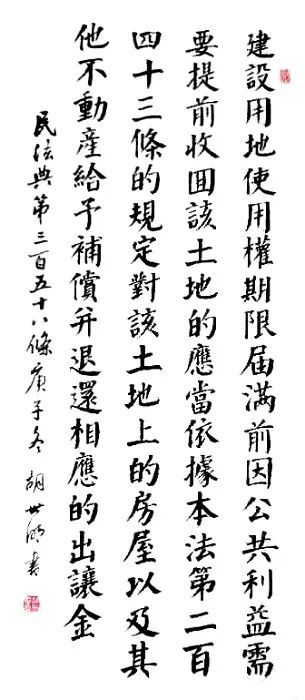 建設用地使用權期限届滿前因公共利益需
要提前收回該土地的應當依據本法第二百
四十三條的規定對該土地上的房屋以及其
他不動產給予補償并退還相應的出讓金
民法典第三百五十八條庚子冬 胡世 書